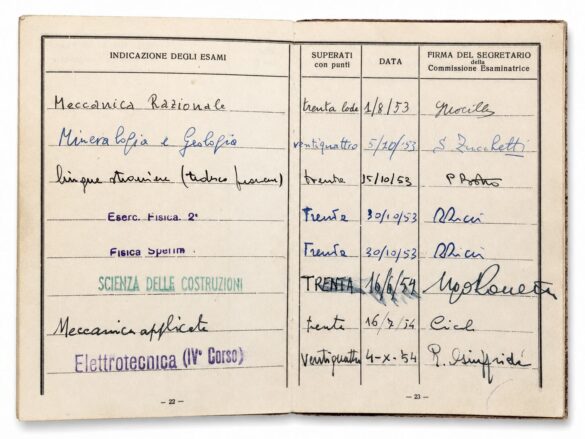 INDICAZIONE DEGLI ESAMI SUPERATI con punti DATA FIRMA DEL SEGRETARIO della Commissione Esaminatrice
Meccanica Razionale trenta lode 1/8/53
Mineralogia e Geologia ventiquattro 5/10/53 S Zucchetti
lingue straniere (tedesco francese) trenta 15/10/53
Eserc. Fisica. 2° Trenta 30/10/53
Fisica Sperim Trenta 30/10/53
SCIENZA DELLE COSTRUZIONI TRENTA 16/6/54
Meccanica applicata trenta 16/7/54
Elettrotecnica (IV° Corso) ventiquattro 4-X-54 R.
— 22 — — 23 —